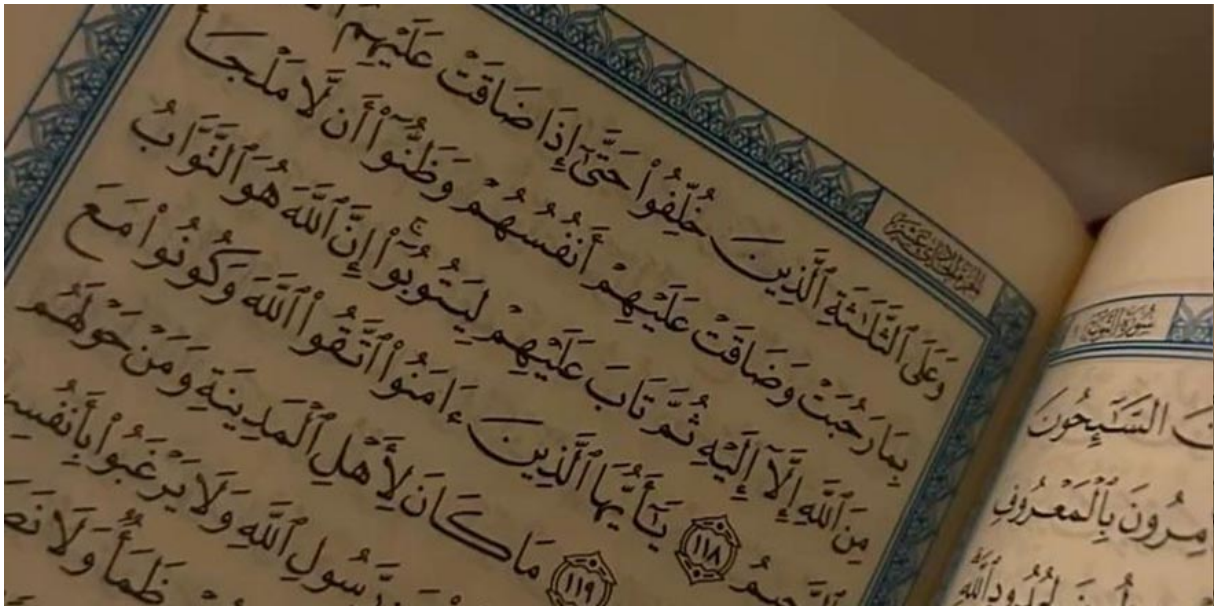 الجزء الحادي عشر
وَعَلَى ٱلثَّلَٰثَةِ ٱلَّذِينَ خُلِّفُوا۟ حَتَّىٰٓ إِذَا ضَاقَتْ عَلَيْهِمُ
بِمَا رَحُبَتْ وَضَاقَتْ عَلَيْهِمْ أَنفُسُهُمْ وَظَنُّوٓا۟ أَن لَّا مَلْجَأَ
مِنَ ٱللَّهِ إِلَّآ إِلَيْهِ ثُمَّ تَابَ عَلَيْهِمْ لِيَتُوبُوٓا۟ ۚ إِنَّ ٱللَّهَ هُوَ ٱلتَّوَّابُ
ٱلرَّحِيمُ ١١٨ يَٰٓأَيُّهَا ٱلَّذِينَ ءَامَنُوا۟ ٱتَّقُوا۟ ٱللَّهَ وَكُونُوا۟ مَعَ
١١٩ مَا كَانَ لِأَهْلِ ٱلْمَدِينَةِ وَمَنْ حَوْلَهُم
رَّسُولِ ٱللَّهِ وَلَا يَرْغَبُوا۟ بِأَنفُسِ
ظَمَأٌ وَلَا
سورة التوبة
ٱلسَّٰٓئِحُونَ
بِٱلْمَعْرُوفِ
لِحُدُودِ ٱللَّهِ